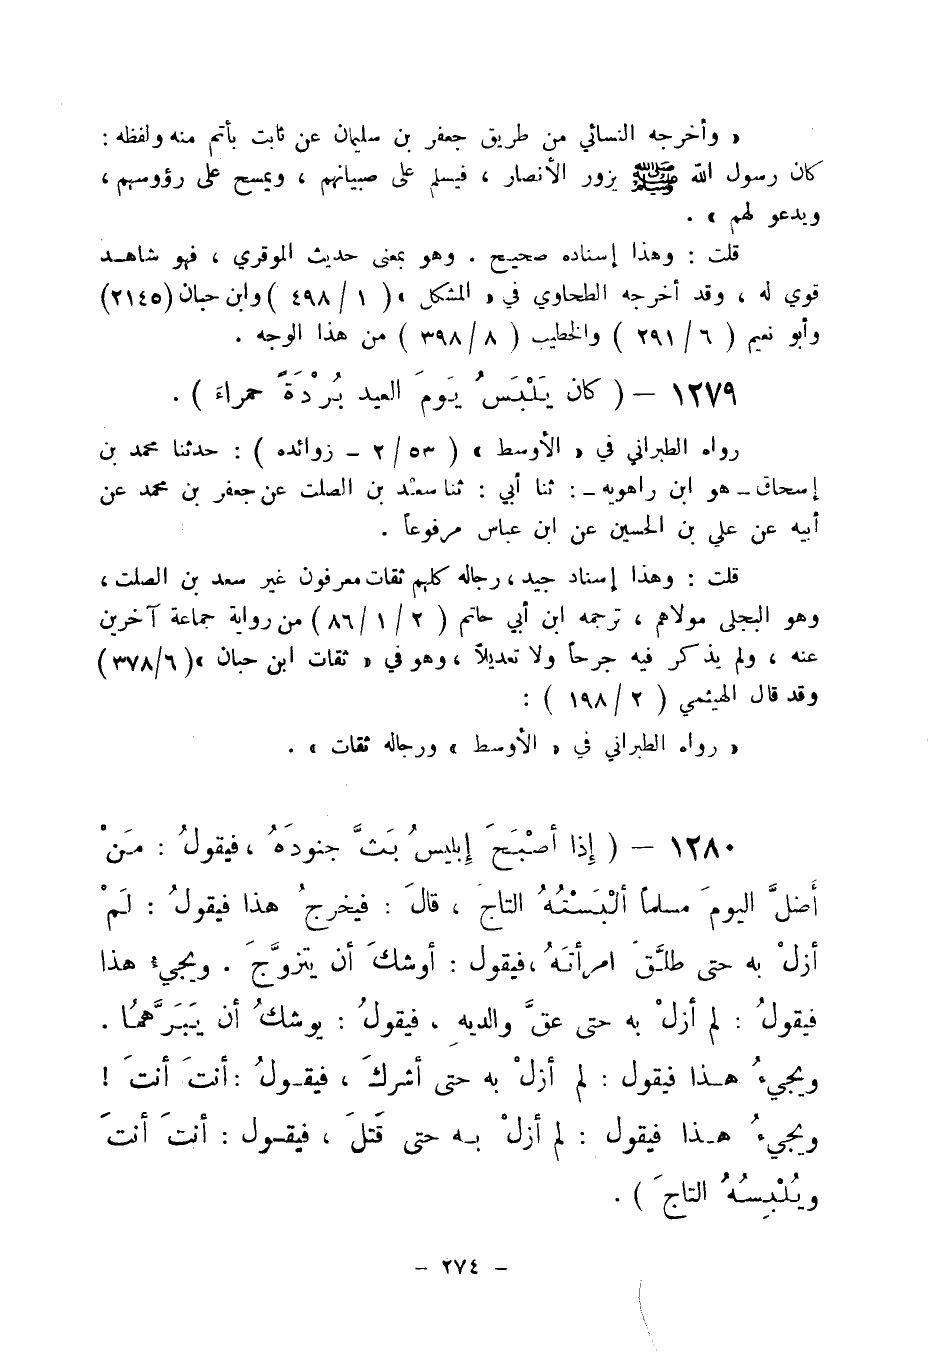 « وأخرجه النسائي من طريق جعفر بن سليمان عن ثابت بأتم منه ولفظه :
كان رسول الله ﷺ يزور الأنصار ، فيسلم على صبيانهم ، ويمسح على رؤوسهم ،
ويدعو لهم » .
قلت : وهذا إسناده صحيح . وهو بمعنى حديث الموقري ، فهو شاهد
قوي له ، وقد أخرجه الطحاوي في « المشكل » ( ١ / ٤٩٨ ) وابن حبان (٢١٤٥)
وأبو نعيم ( ٦ / ٢٩١ ) والخطيب ( ٨ / ٣٩٨ ) من هذا الوجه .
١٢٧٩ – ( كان يَلْبَسُ يَومَ العيد بُرْدَةً حمراءَ ) .
رواه الطبراني في « الأوسط » ( ٥٣ / ٢ – زوائده ) : حدثنا محمد بن
إسحاق – هو ابن راهويه – : ثنا أبي : ثنا سعد بن الصلت عن جعفر بن محمد عن
أبيه عن علي بن الحسين عن ابن عباس مرفوعاً .
قلت : وهذا إسناد جيد ، رجاله كلهم ثقات معرفون غير سعد بن الصلت ،
وهو البجلى مولاهم ، ترجمه ابن أبي حاتم ( ٢ / ١ / ٨٦ ) من رواية جماعة آخرين
عنه ، ولم يذكر فيه جرحاً ولا تعديلاً ، وهو في « ثقات ابن حبان » (٦/ ٣٧٨)
وقد قال الهيثمي ( ٢ / ١٩٨ ) :
« رواه الطبراني في « الأوسط » ورجاله ثقات » .
١٢٨٠ – ( إذا أصْبَحَ إبليسُ بَثَّ جنودَهُ ، فيقولُ : مَنْ
أَضلَّ اليومَ مسلماً ألْبَسْتُهُ التاجَ ، قالَ : فيخرجُ هذا فيقولُ : لَمْ
أزلْ به حتى طلَّقَ امرأتَهُ ، فيقول : أوشكَ أن يتزوَّجَ . ويجيءُ هذا
فيقولُ : لم أزلْ به حتى عقَّ والديهِ ، فيقولُ : يوشكُ أن يَبَرَّهمُا .
ويجيءُ هذا فيقول : لم أزلْ به حتى أشركَ ، فيقولُ : أنتَ أنتَ !
ويجيءُ هذا فيقول : لم أزلْ به حتى قَتلَ ، فيقول : أنتَ أنتَ
ويُلْبِسُهُ التاجَ ) .
– ٢٧٤ –